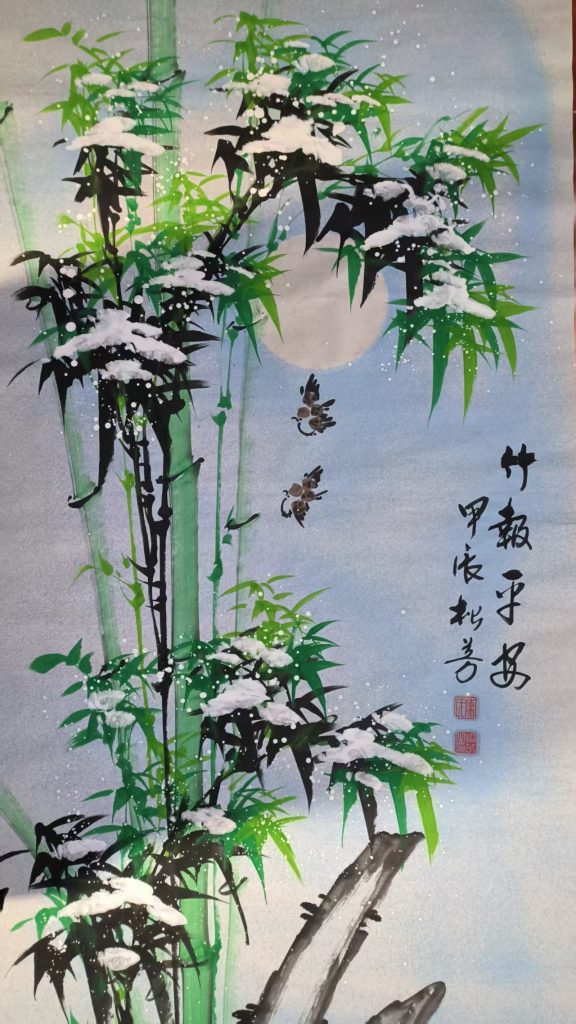 竹報平安
甲辰松芳